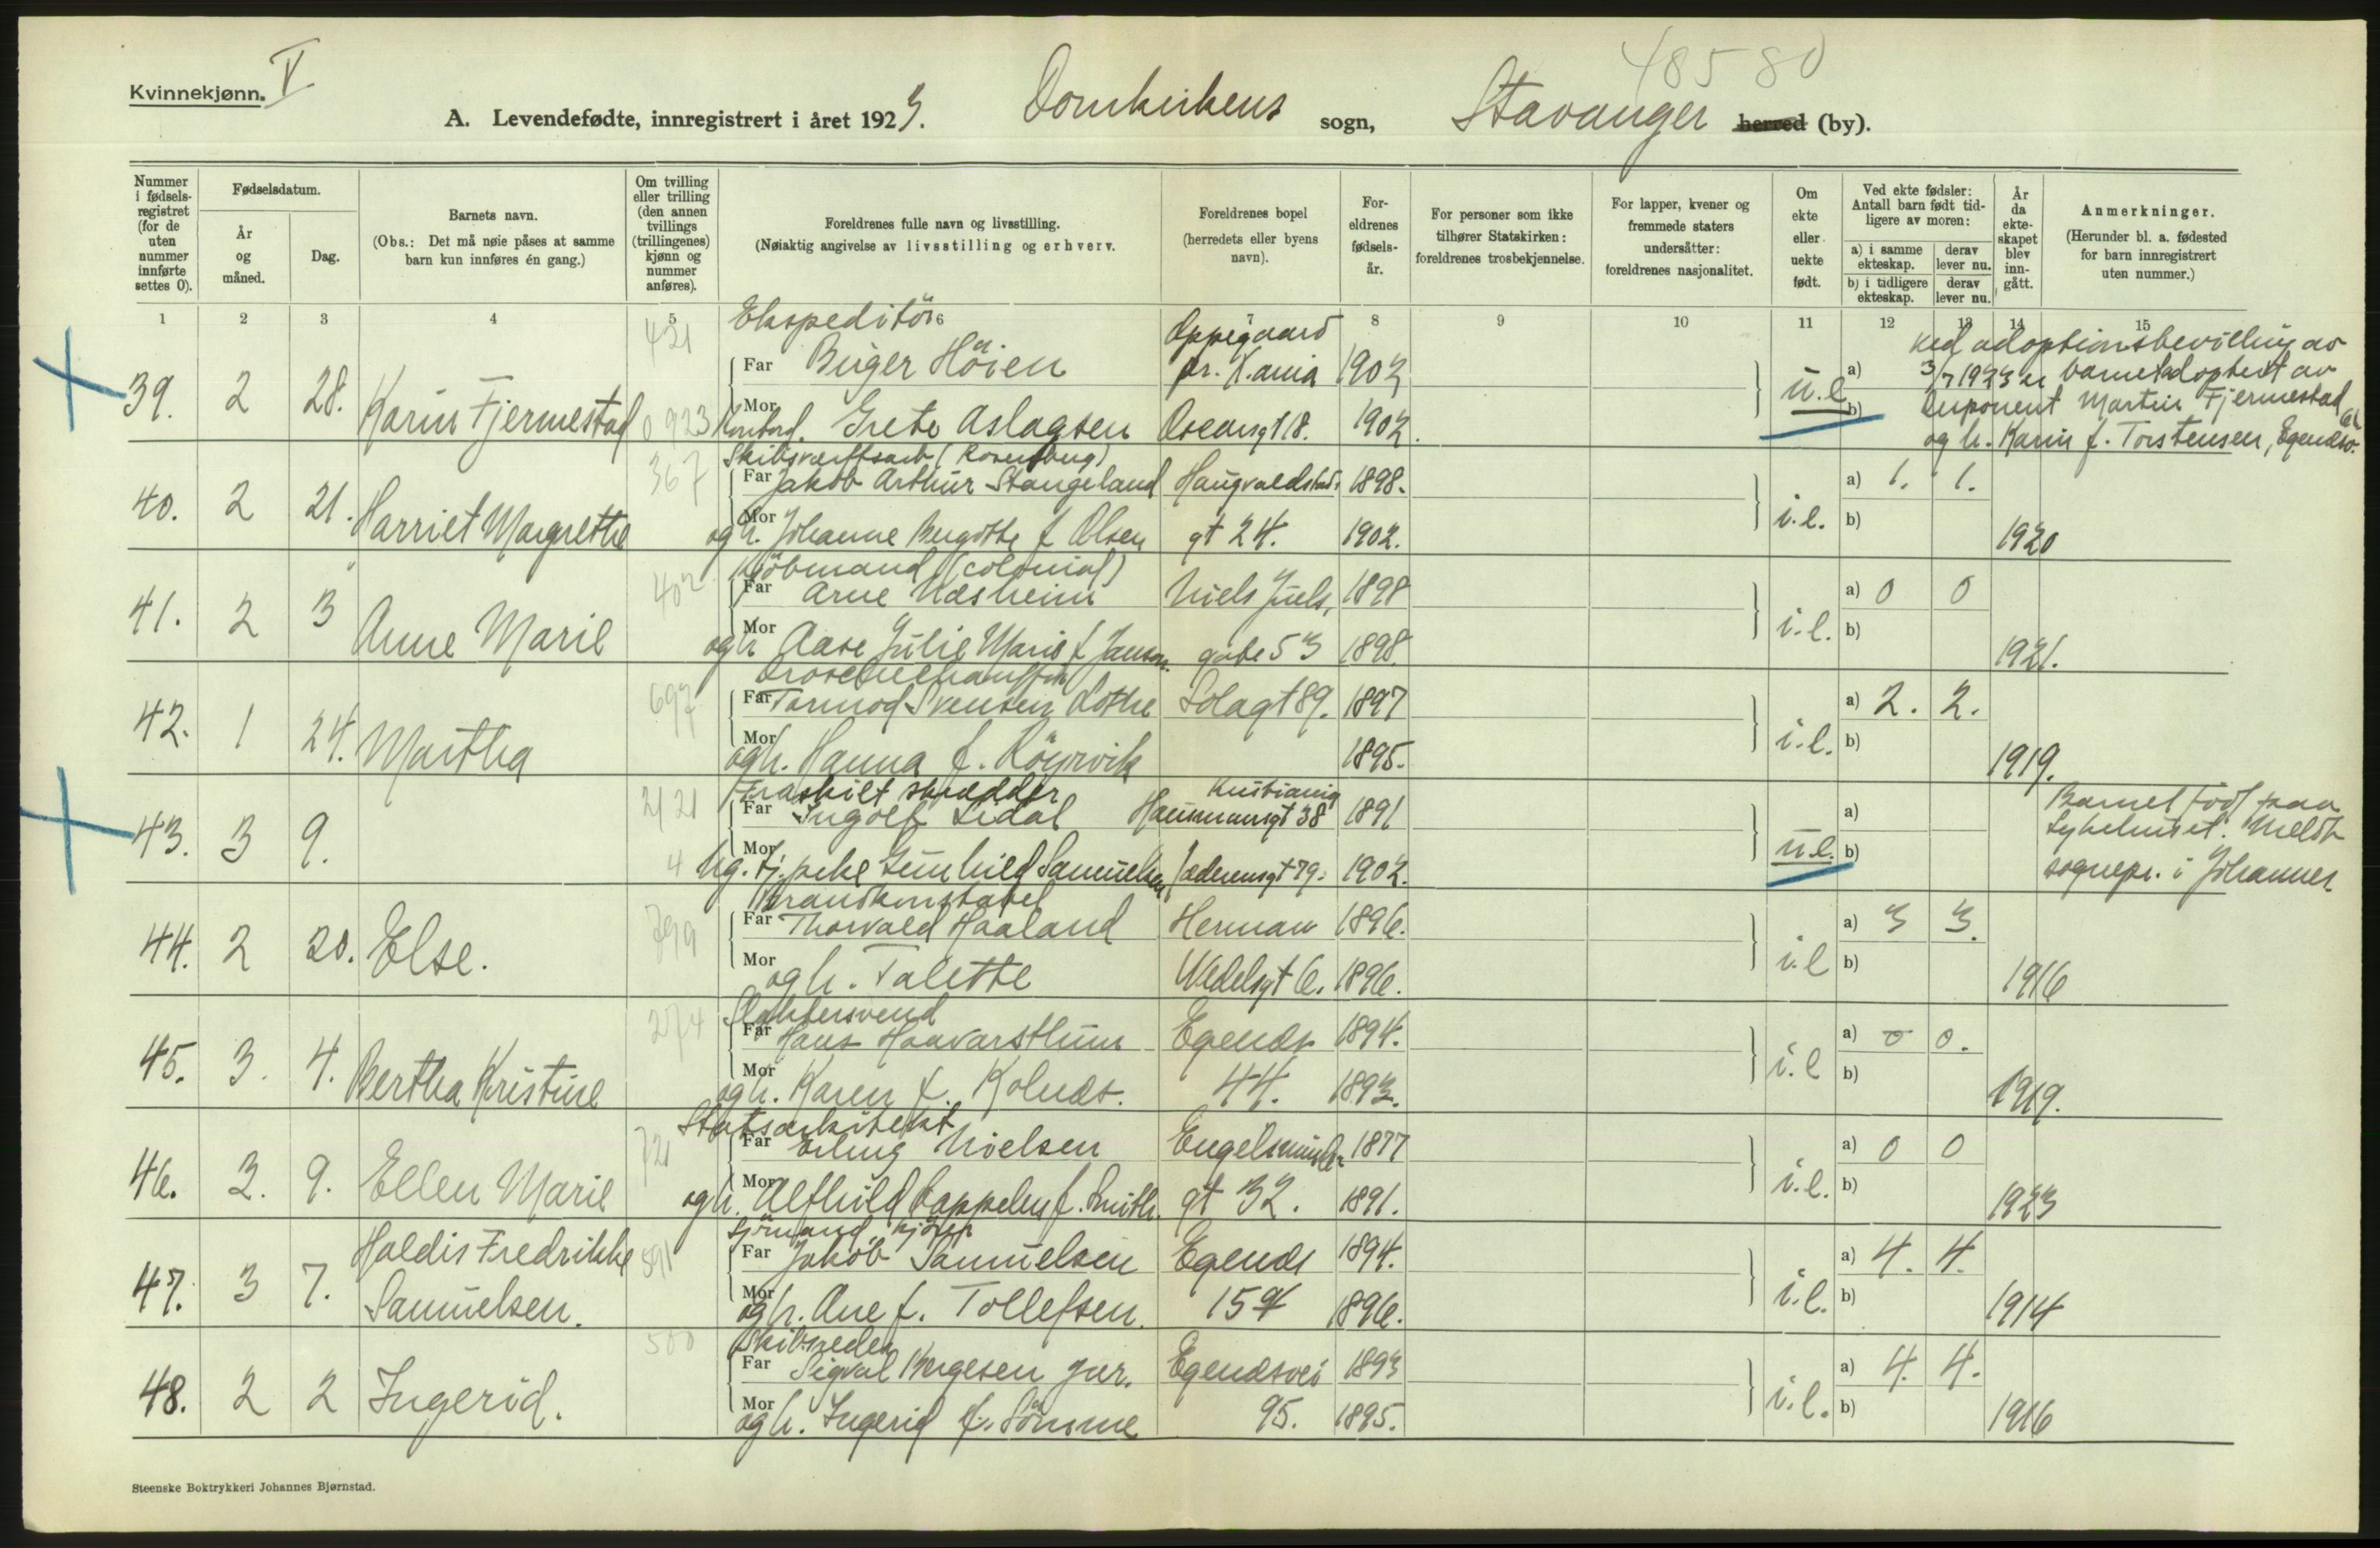 48580
Kvinnekjønn. V
A. Levendefødte, innregistrert i året 1923. Domkirkens sogn, Stavanger herred (by).
Nummer i fødsels-registret (for de uten nummer innførte settes 0).
Fødselsdatum.
År og måned.
Dag.
Barnets navn.
(Obs.: Det må nøie påses at samme barn kun innføres én gang.)
Om tvilling eller trilling (den annen tvillings (trillingenes) kjønn og nummer anføres).
Foreldrenes fulle navn og livsstilling.
(Nøiaktig angivelse av livsstilling og erhverv.
Foreldrenes bopel (herredets eller byens navn).
For-eldrenes fødsels-år.
For personer som ikke tilhører Statskirken: foreldrenes trosbekjennelse.
For lapper, kvener og fremmede staters undersåtter: foreldrenes nasjonalitet.
Om ekte eller uekte født.
Ved ekte fødsler: Antall barn født tid-ligere av moren:
a) i samme ekteskap.
derav lever nu.
b) i tidligere ekteskap.
derav lever nu.
År da ekte-skapet blev inn-gått.
Anmerkninger.
(Herunder bl. a. fødested for barn innregistrert uten nummer.)
1 2 3 4 5 6 7 8 9 10 11 12 13 14 15
421 Ekspeditör Oppegaard ved adoptionsbevilling av
Far Birger Höien pr. K.ania 1902 a) 3/7 1923 er barnet adoptert av
39. 2 28. Karin Fjermestad u.e. b) Disponent Martin Fjermestad
0 923 Mor Kontord. Grete Aslagsen Oscarsgt 18. 1902. og h. Karin f. Torstensen, Egendsv.
367 Skibsværftsarb (Rosenberg)
Far Jakob Arthur Stangeland Haugvaldstads 1898. a) 1. 1.
40. 2 21. Harriet Margrethe i.e. b)
Mor og h. Johanne Bergitte f Olsen gt 24. 1902. 1920
402 Kjöbmand (colonial)
Far Arne Næsheim Niels Juels 1898 a) 0 0
41. 2 3 Anne Marie i.e. b)
Mor og h Aase Julie Marie f Janson gate 53 1898. 1921.
697 Droschechauffør
Far Tormod Svensen Lothe Solagt 89. 1897 a) 2. 2.
42. 1 24. Martha i.e. b)
Mor og h. Hanna f. Röyrvik 1895. 1919.
2121 Fraskilt skrædder Kristiania Barnet född paa
Far Ingolf Lidal Hausmansgt 38 1891 a) sykehuset. Meldt
43. 3 9. u.e. b) sognepr. i Johannes
4 Mor Ug. tj.pike Gunhild Samuelsen Jæderensgt 79. 1902.
799 Brandkonstabel
Far Thorvald Haaland Herman 1896. a) 3 3.
44. 2 20. Else. i.e b)
Mor og h. Talette Wedelsgt 6. 1896. 1916
274 Slaktersvend
Far Hans Haavarsthun Egends 1894. a) 0 0.
45. 3. 4. Bertha Kristine i.e b)
Mor og h. Karen f. Kolnæs. 44. 1893. 1919.
721 Statsarkitekt
Far Erling Nielsen Engelsminde 1877 a) 0 0
46. 3. 9. Ellen Marie i.e. b)
Mor og h. Alfhild Cappelen f. Smith. gt 32. 1891. 1923
591 Sjömand
Far Jakob Samuelsen Egends 1894. a) 4. 4.
47. 3 7. Haldis Fredrikke Samuelsen. i.e. b)
Mor og h. Ane f. Tollefsen. 154 1896. 1914
500 Skibsreder
Far Sigval Bergesen jur. Egenæsvei 1893 a) 4. 4.
48. 2 2 Ingerid. i.e. b)
Mor og h. Ingerid f. Sömme 95. 1895. 1916
Steenske Boktrykkeri Johannes Bjørnstad.